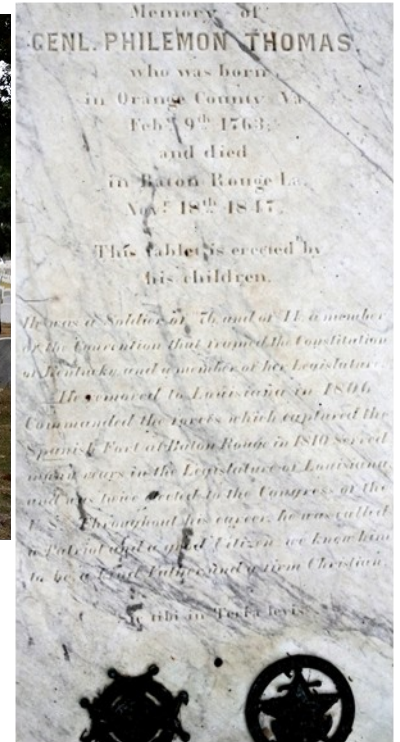 Memory of
GENL. PHILEMON THOMAS.
who was born
in Orange County Va
Feb. 9th 1763;
and died
in Baton Rouge La.
Nov. 18th 1847.
This tablet is erected by
his children.
He was a Soldier of '76, and of '14, a member
of the Convention that framed the Constitution
of Kentucky, and a member of her Legislature.
He removed to Louisiana in 1806
Commanded the forces which captured the
Spanish Fort at Baton Rouge in 1810 served
many ways in the Legislature of Louisiana
and was twice elected to the Congress of the
Throughout his career, he was called
a Patriot and a good Citizen: we know him
to be a Kind Father and a firm Christian.
tibi in Terra levis